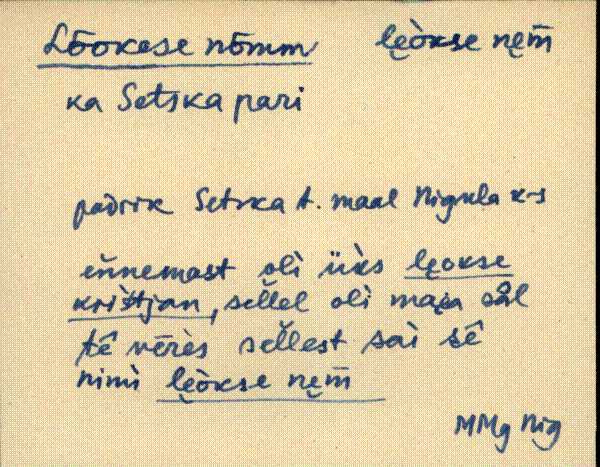 Lõokese nõmm lęòkse nęm̄
ka Setska pari
padrik Setska t. maal Nigula k-s
eǹnemast oli üks lęokse
kriśtjan, sellel oli maja sàl
tê vēres sellest sai sê
nimi lęòkse nęm̄
MMg Nig